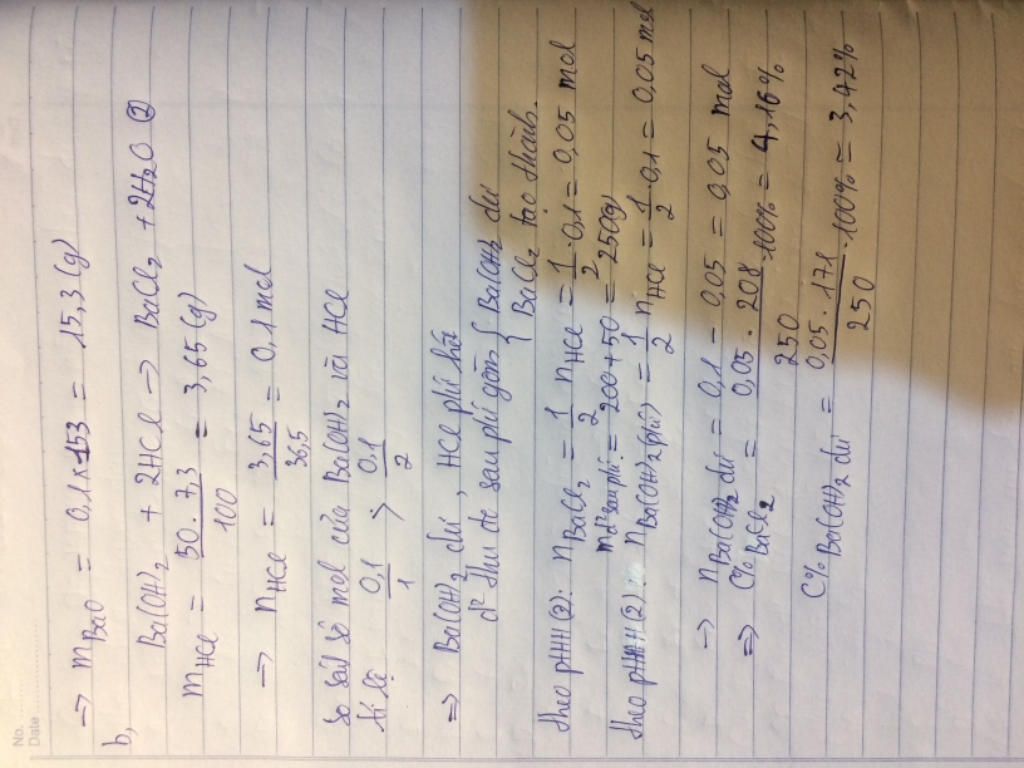 No.
Date
→ mBaO = 0,1 x 153 = 15,3 (g)
b, Ba(OH)2 + 2HCl → BaCl2 + 2H2O ②
mHCl = 50 . 7,3 / 100 = 3,65 (g)
→ nHCl = 3,65 / 36,5 = 0,1 mol
So sánh số mol của Ba(OH)2 và HCl
tỉ lệ 0,1 / 1 > 0,1 / 2
⇒ Ba(OH)2 dư, HCl p/ứ hết
d² thu đc sau p/ứ gồm { Ba(OH)2 dư
BaCl2 tạo thành.
theo pthh (2): nBaCl2 = 1/2 nHCl = 1/2 . 0,1 = 0,05 mol
md² sau p/ứ = 200 + 50 = 250(g)
theo pthh (2): nBa(OH)2 (p/ứ) = 1/2 nHCl = 1/2 . 0,1 = 0,05 mol
→ nBa(OH)2 dư = 0,1 - 0,05 = 0,05 mol
⇒ C% BaCl2 = 0,05 . 208 / 250 . 100% = 4,16%
C% Ba(OH)2 dư = 0,05 . 171 / 250 . 100% = 3,42%